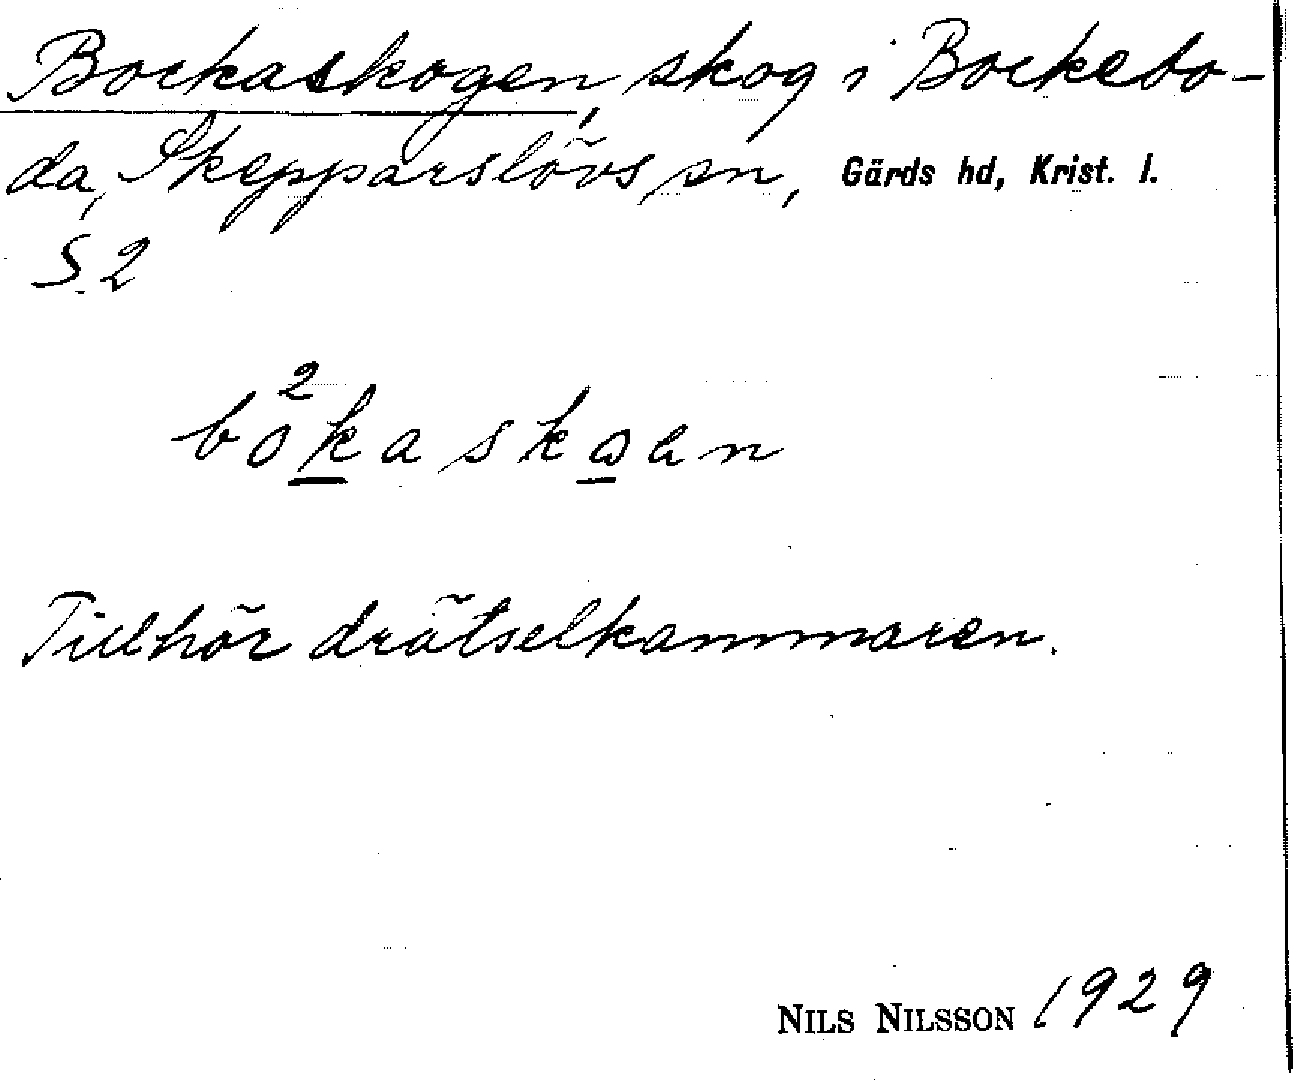 Bockaskogen, skog i Bockebo-
da, Skepparslövs sn, Gärds hd, Krist. l.
S 2
bo²kaskɷen
Tillhör drätselkammaren.
NILS NILSSON 1929